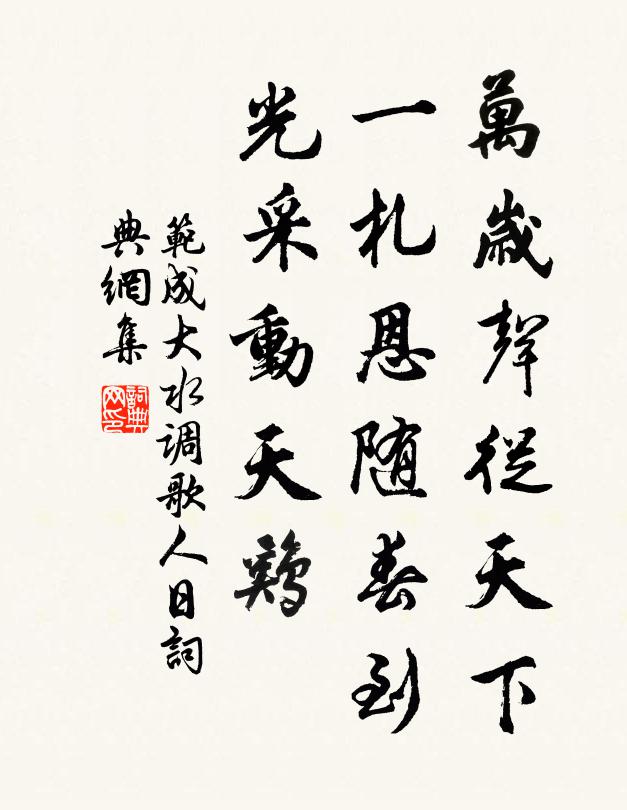 萬歲聲從天下
一札恩随春到
光采動天鷄
範成大水调歌人日詞
典網集
詞典網印